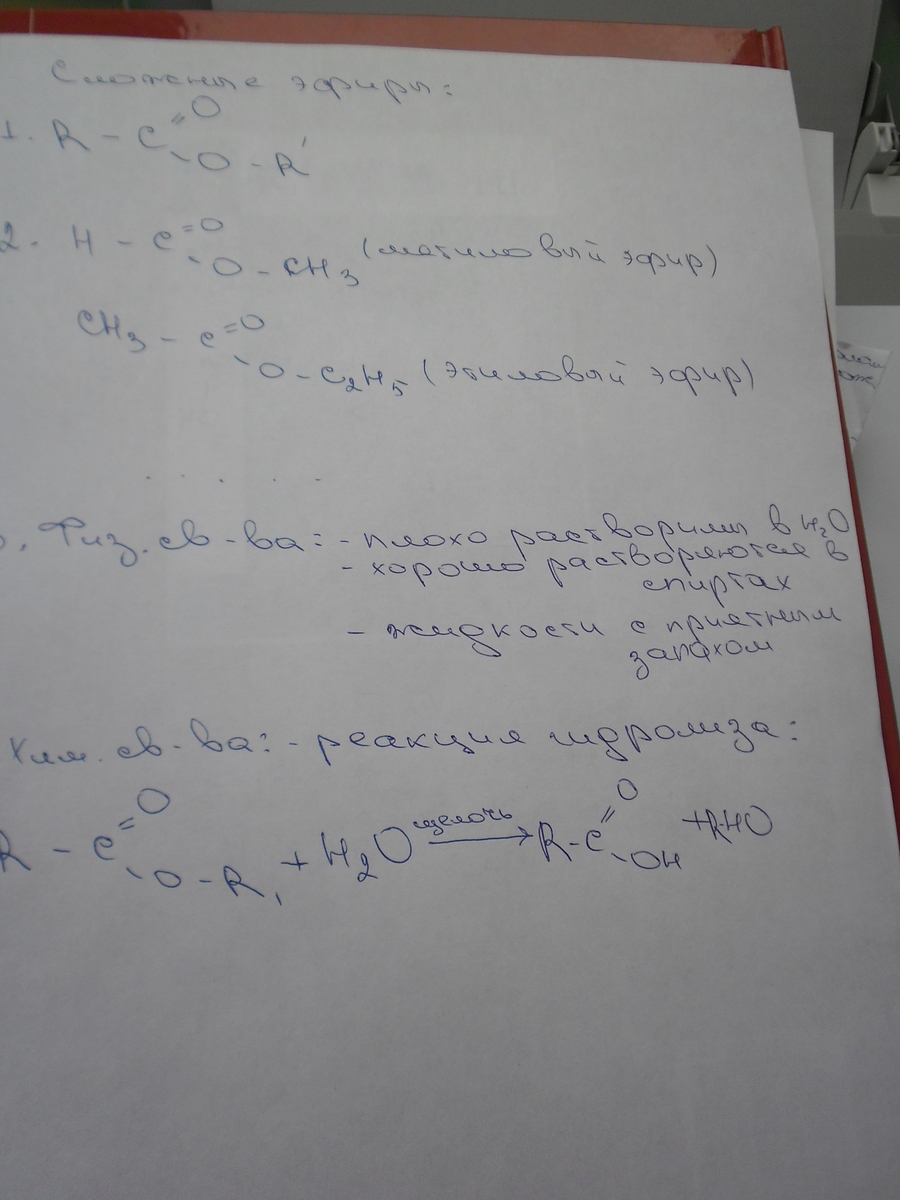 Сложные эфиры:
1. R - C =O
- O - R'
2. H - C =O
- O - CH3 (метиловый эфир)
CH3 - C =O
- O - C2H5 (этиловый эфир)
. . . . .
. Физ. св-ва: - плохо растворимы в H2O
- хорошо растворяются в
спиртах
- жидкости с приятным
запахом
Хим. св-ва: - реакция гидролиза:
R - C =O
- O - R1 + H2O щелочь → R - C =O
- OH + RHO